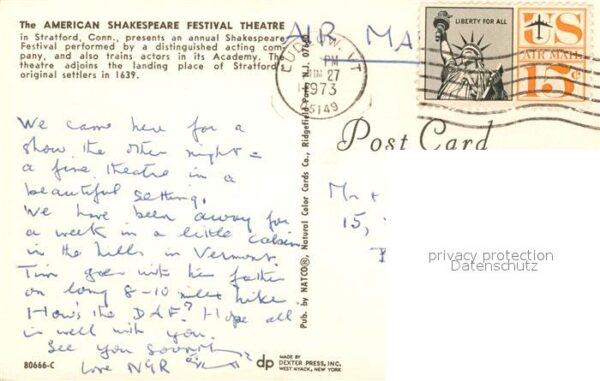 The AMERICAN SHAKESPEARE FESTIVAL THEATRE
in Stratford, Conn., presents an annual Shakespeare
Festival performed by a distinguished acting com-
pany, and also trains actors in its Academy. The
theatre adjoins the landing place of Stratford
original settlers in 1639.
AIR MA
LUDLOW, VT
PM
JUN 27
1973
05149
LIBERTY FOR ALL
US
AIR MAIL
15¢
Post Card
We came here for a
show the other night -
a fine theatre in a
beautiful setting.
We have been away for
a week in a little cabin
in the hills in Vermont.
Tim goes with his father
on long 8-10 miles hike.
How's the DAF? Hope all
is well with you.
See you soon
Love
Mr +
15,
Pub. by NATCO®, Natural Color Cards Co., Ridgefield Park, N.J. 07660
privacy protection
Datenschutz
80666-C
dp
MADE BY
DEXTER PRESS, INC.
WEST NYACK, NEW YORK